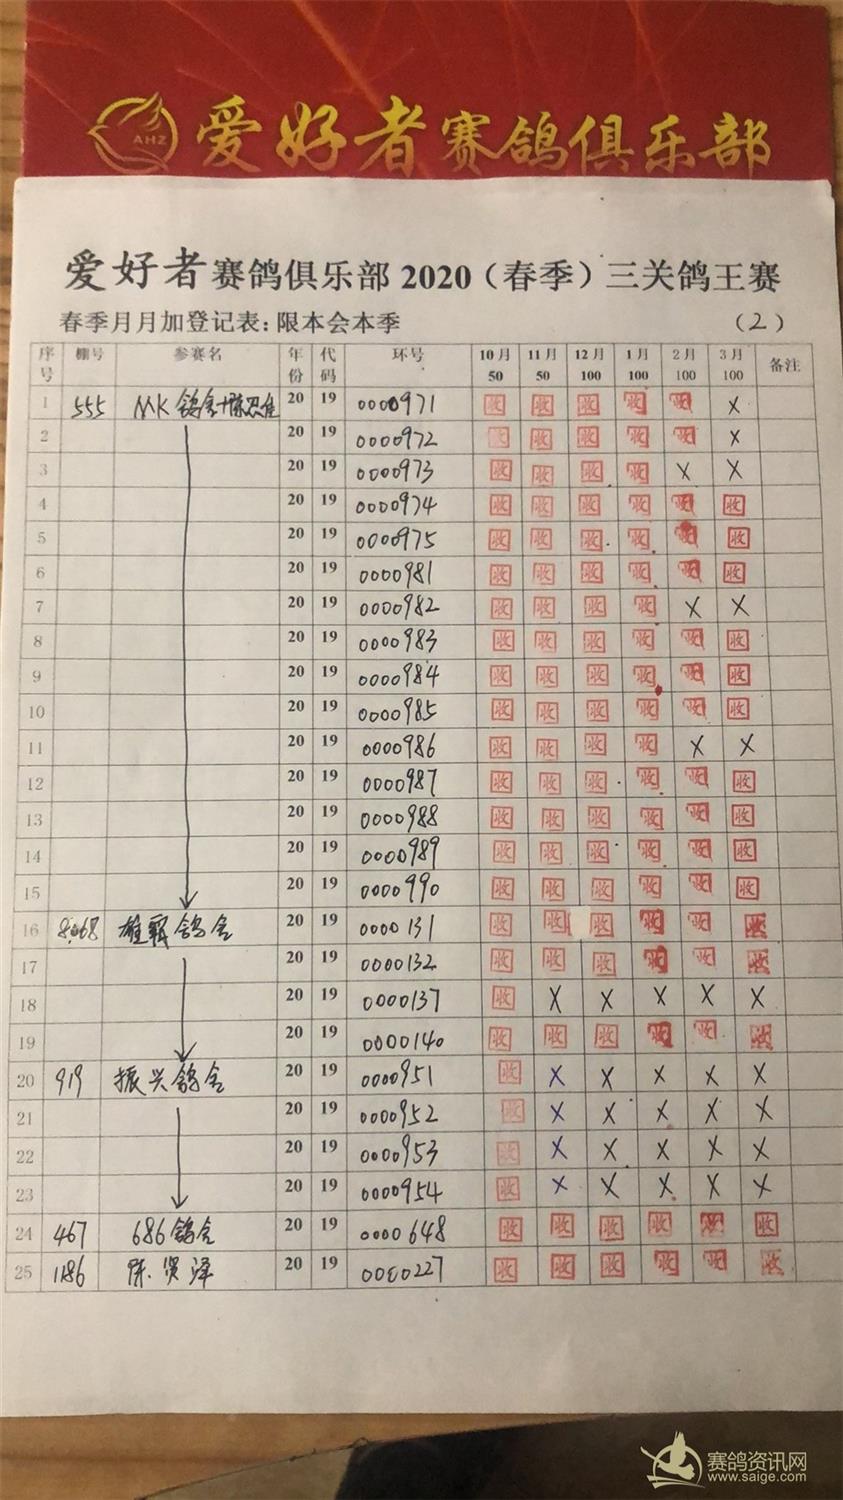 AHZ 爱好者赛鸽俱乐部
爱好者赛鸽俱乐部 2020（春季）三关鸽王赛
春季月月加登记表：限本会本季 （2）
序号 棚号 参赛名 年份 代码 环号 10月50 11月50 12月100 1月100 2月100 3月100 备注
1 555 MK鸽舍+陈思 20 19 0000971 收 收 收 收 收 X
2 20 19 0000972 收 收 收 收 收 X
3 20 19 0000973 收 收 收 收 X X
4 20 19 0000974 收 收 收 收 收 收
5 20 19 0000975 收 收 收 收 收 收
6 20 19 0000981 收 收 收 收 收 收
7 20 19 0000982 收 收 收 收 X X
8 20 19 0000983 收 收 收 收 收 收
9 20 19 0000984 收 收 收 收 收 收
10 20 19 0000985 收 收 收 收 收 收
11 20 19 0000986 收 收 收 收 X X
12 20 19 0000987 收 收 收 收 收 收
13 20 19 0000988 收 收 收 收 收 收
14 20 19 0000989 收 收 收 收 收 收
15 20 19 0000990 收 收 收 收 收 收
16 雄霸鸽舍 20 19 0000131 收 收 收 收 收 收
17 20 19 0000132 收 收 收 收 收 收
18 20 19 0000137 收 X X X X X
19 20 19 0000140 收 收 收 收 收 收
20 919 振兴鸽舍 20 19 0000951 收 X X X X X
21 20 19 0000952 收 X X X X X
22 20 19 0000953 收 X X X X X
23 20 19 0000954 收 X X X X X
24 467 686鸽舍 20 19 0000648 收 收 收 收 收 收
25 1186 陈贤泽 20 19 0000227 收 收 收 收 收 收
赛鸽资讯网
www.saige.com